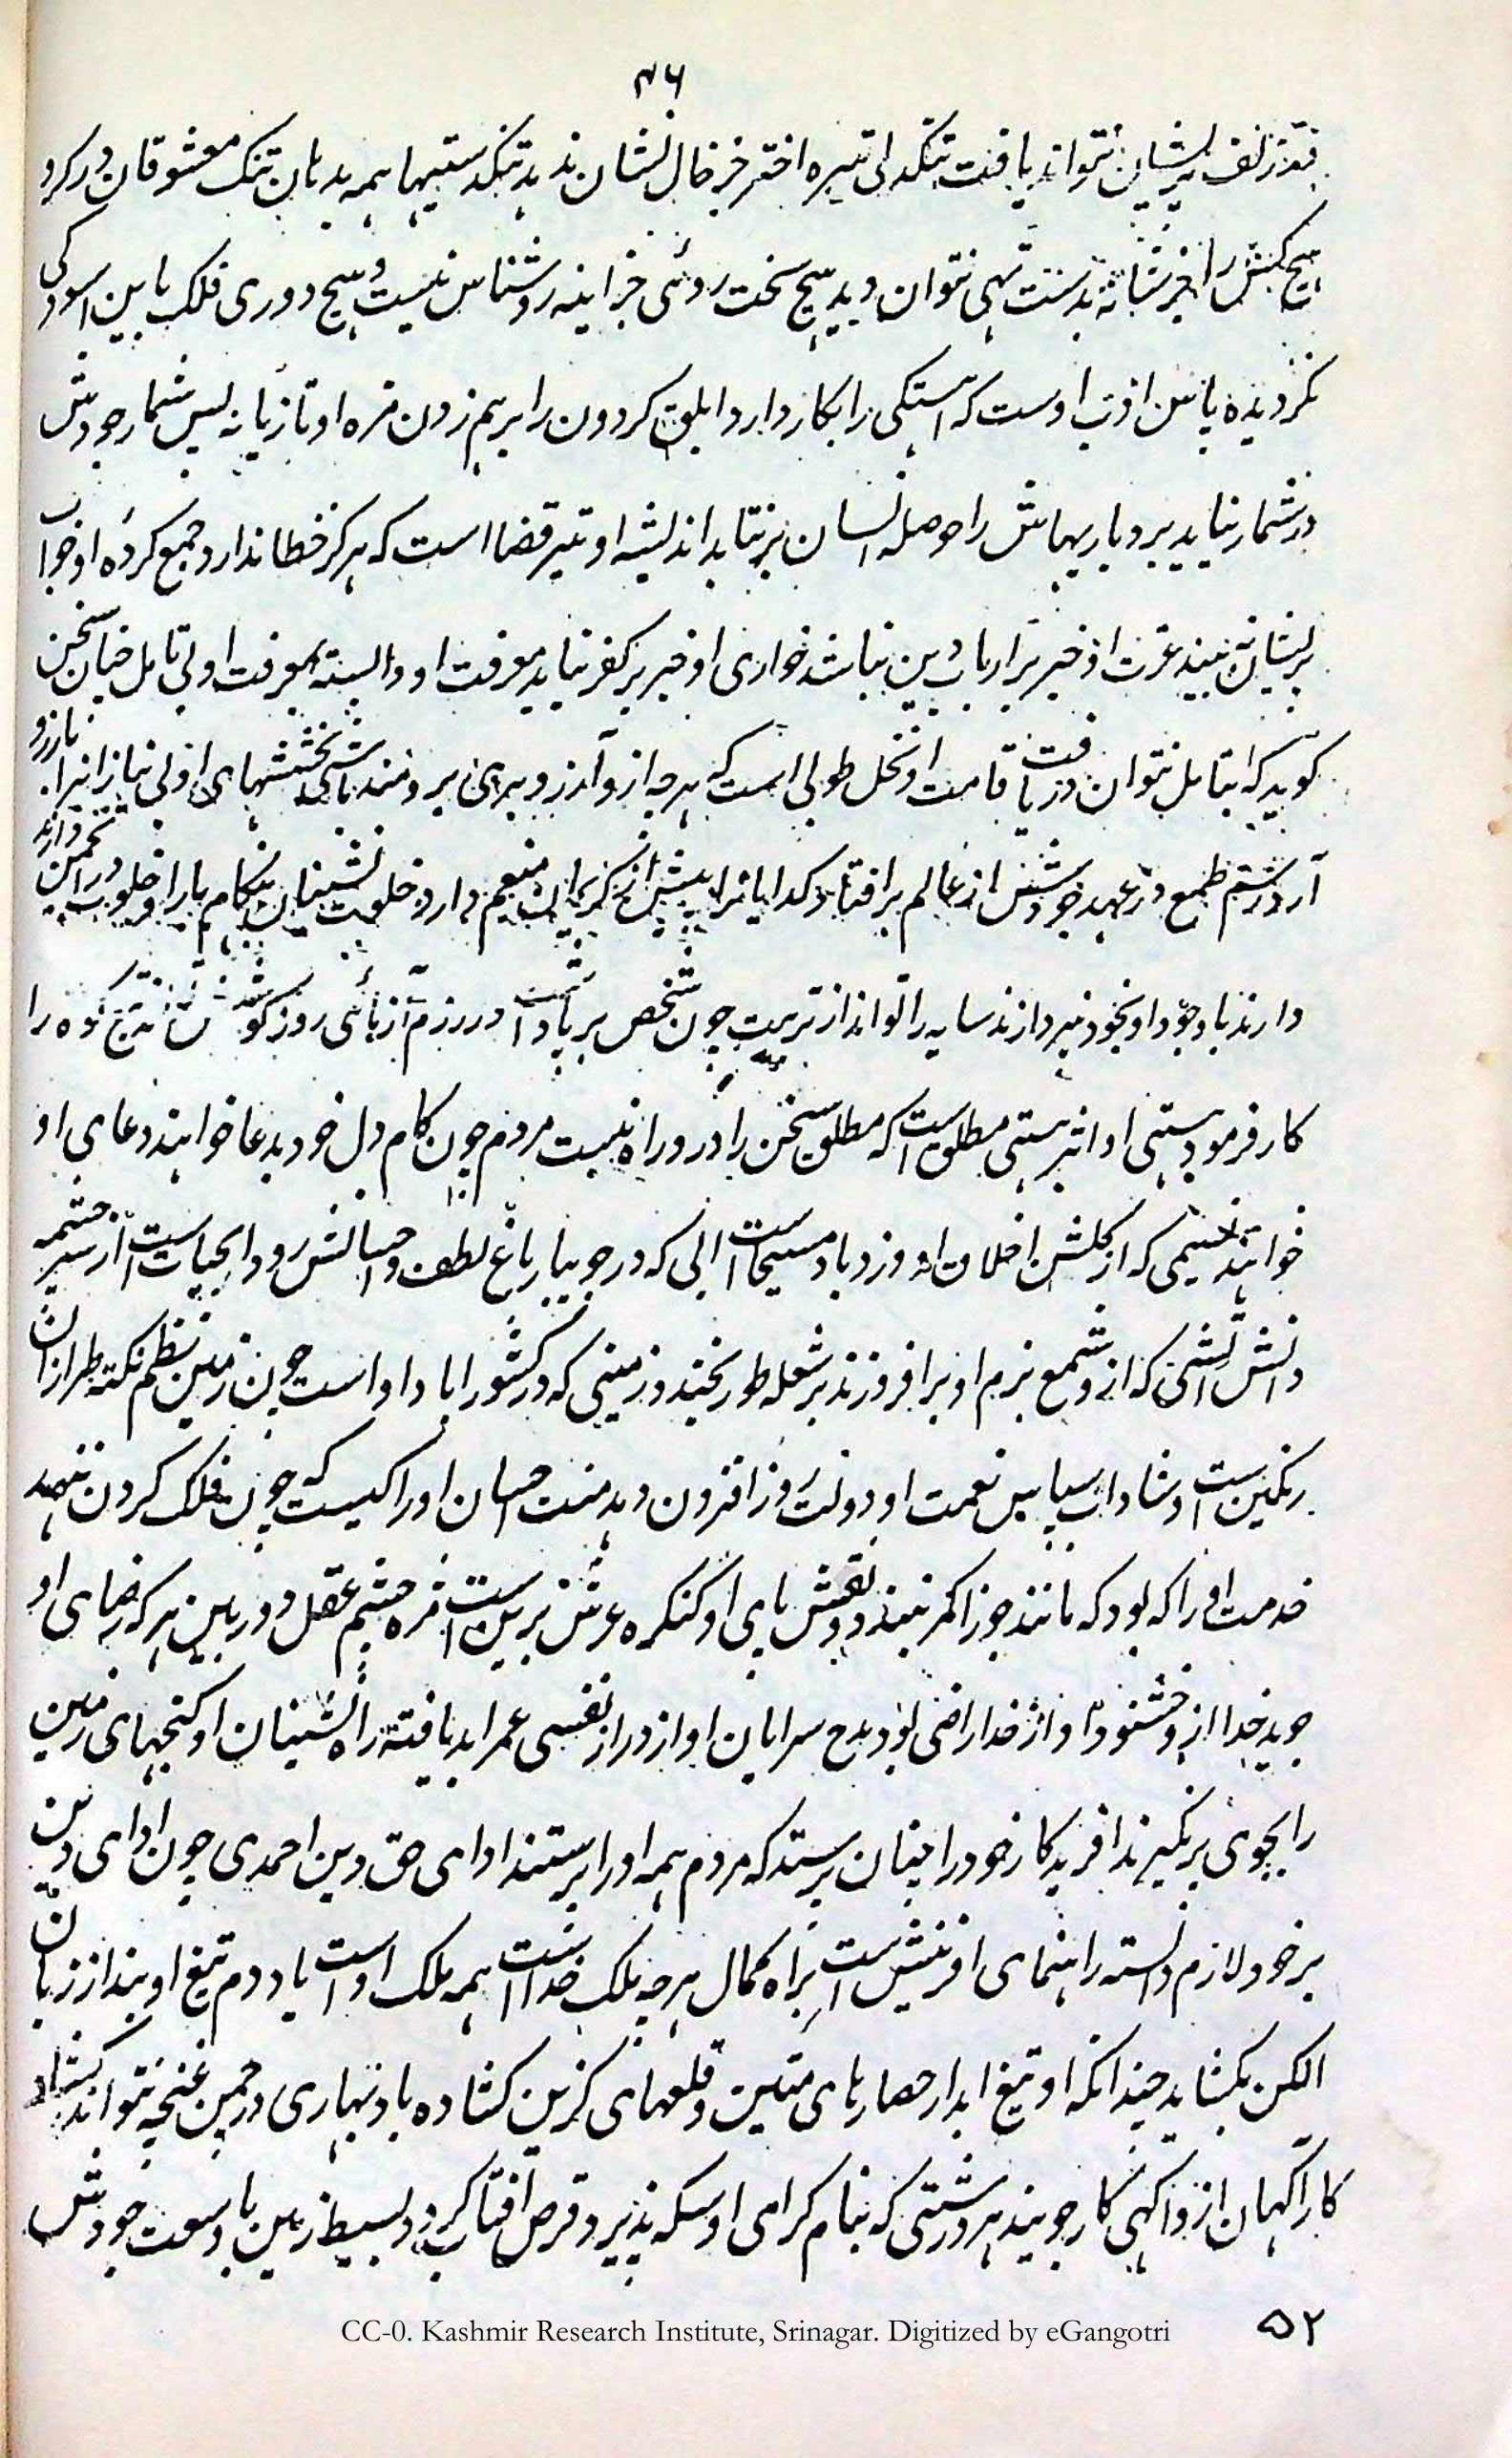 ۴۶
نقد زلف پریشان نتواند یافت تنگدلی تیره اختر جز خال نشان ندهد تنگدستیها همه بدهان تنگ معشوقان در کرد
هیچ کس را جز شانه بدست تهی نتوان دید هیچ سخت روئی جز اینه روشناس نیست و هیچ دوری فلک باین اسودگی
نگردیده پاس ادب اوست که استکی را بکار دارد ابلق کردون را برهم زدن مژه او تازیانه بس شمار جودش
در شمار نیاید بردباریهایش را حوصله انسان برنتابد اندیشه او تیر قضا است که هرکز خطا ندارد جمع کرده او خواب
پریشان نبیند عزت او خیر بر ارباب دین نباشد خواری او خیر بر کفر نیاید معرفت او وابسته بمعرفت اولی تامل چنان سخن
کوید که بتامل نتوان دریافت قامت او نخل طوبی است که هرچه ازو آرزو بری برومند باشی بخششهای او بی نیازانرا بارزو
آرد رسم طمع در عهد جودش از عالم برافتاد کدایانرا بیش از کریمان منعم دارد خلوت نشینان بنکام بار او خلوت در انجمن دارند
دارند با وجود او بخود نپردازند سایه را تواند از تربیت چون شخص برپا داشت در رزم آزمائی روز کوشش تیغ کوه را
کار فرمود هستی او اثر هستی مطلق است که مطلق سخن را درو راه نیست مردم چون کام دل خود بدعا خواهند دعای او
خوانند نسیمی که از کلشن اخلاق او وزد باد مسیحا است ابی که در جویبار باغ لطف و احسانش رود ابحیات است از سر چشمه
دانش آتشی که از شمع بزم او برافروزند بر شعله طور بخندد زمینی که در کشور اباد او است چون زمین نظم نکته طرازان
رنکین است و شاداب سپاس نعمت او دولت روز افزون دهد منت احسان او را کیست که چون فلک کردن ننهد
خدمت او را که بود که مانند جوزا کمر نبندد نقش پای او کنکره عرش برین است مژه چشم عقل دوربین هرکه رضای او
جوید خدا ازو خشنود و او از خدا راضی بود مدح سرایان او از دراز نفسی عمر ابد یافته راه نشینان او کنجهای زمین
را بجوی برنگیرند افریدکار خود را چنان پرستد که مردم همه او را پرستند ادای حق دین احمدی چون ادای دین
بر خود لازم دانسته راهنمای افرینش است براه کمال هرچه ملک خدا است همه ملک او است یاد دم تیغ او بند از زبان
الکن بکشاید چندانکه او بتیغ ابدار حصارهای متین و قلعهای کزین کشاده باد بهاری در چمن غنچه نتواند کشاد
کار آکهان ازو آکهی کار جویند هر درستی که بنام کرامی او سکه پذیرد قرص آفتاب کردد بسیط زمین با وسعت جودش
۵۲
CC-0. Kashmir Research Institute, Srinagar. Digitized by eGangotri